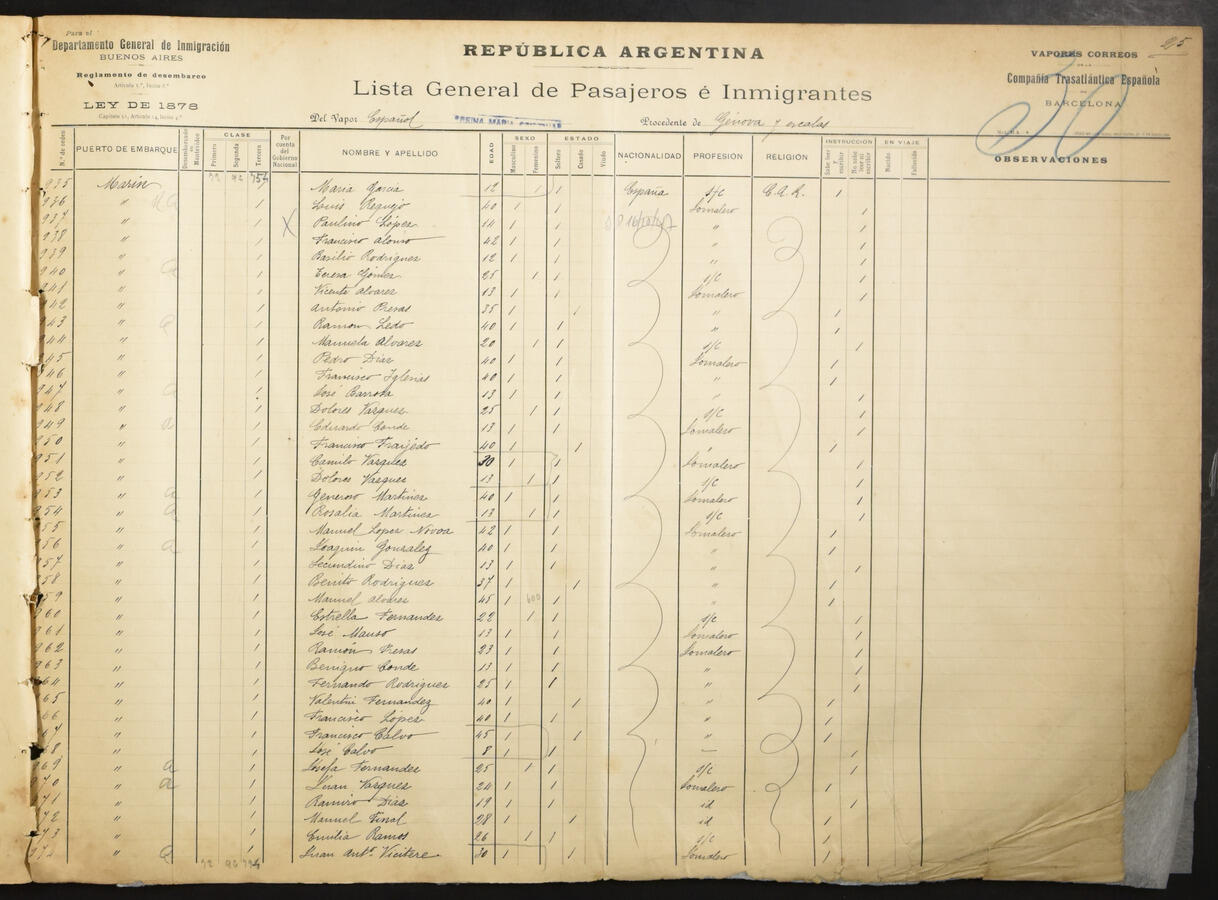 Para el
Departamento General de Inmigración
BUENOS AIRES
Reglamento de desembarco
LEY DE 1878
REPÚBLICA ARGENTINA
Lista General de Pasajeros é Inmigrantes
Del Vapor Español Procedente de Génova y escalas
VAPORES CORREOS
Compañía Trasatlántica Española
BARCELONA
25
30
OBSERVACIONES
N.º de orden PUERTO DE EMBARQUE Desembarcado en Montevideo CLASE Primera Segunda Tercera Por cuenta del Gobierno Nacional NOMBRE Y APELLIDO EDAD SEXO Masculino Femenino ESTADO Soltero Casado Viudo NACIONALIDAD PROFESIÓN RELIGIÓN INSTRUCCIÓN Sabe leer y escribir No sabe leer ni escribir EN VIAJE Nacido Fallecido
935 Marín 754 María García 12 1 1 España s/c C.A.R. 1
936 " 1 Luis Requejo 40 1 1 Jornalero 1
937 " 1 X Paulino López 14 1 1 " 1
938 " 1 Francisco Alonso 42 1 1 " 1
939 " 1 Basilio Rodrigues 12 1 1 " 1
940 " 1 Teresa Gómes 25 1 1 s/c 1
941 " 1 Vicente Alvares 13 1 1 Jornalero 1
942 " 1 Antonio Presas 35 1 1 " 1
943 " 1 Ramon Ledo 40 1 1 " 1
944 " 1 Manuela Alvares 20 1 1 s/c 1
945 " 1 Pedro Dias 40 1 1 Jornalero 1
946 " 1 Francisco Iglesias 40 1 1 " 1
947 " 1 José Barrosa 13 1 1 " 1
948 " 1 Dolores Vasques 25 1 1 s/c 1
949 " 1 Eduardo Conde 13 1 1 Jornalero 1
950 " 1 Francisco 40 1 1 " 1
951 " 1 Camilo Vasques 30 1 1 Jornalero 1
952 " 1 Dolores Vasques 13 1 1 s/c 1
953 " 1 Generoso Martines 40 1 1 Jornalero 1
954 " 1 Rosalia Martines 13 1 1 s/c 1
955 " 1 Manuel Lopez Novoa 42 1 1 Jornalero 1
956 " 1 Joaquin Gonzalez 40 1 1 " 1
957 " 1 Secundino Dias 13 1 1 " 1
958 " 1 Benito Rodrigues 37 1 1 " 1
959 " 1 Manuel Alvares 45 1 1 " 1
960 " 1 Estrella Fernandes 22 1 1 s/c 1
961 " 1 José 13 1 1 Jornalero 1
962 " 1 Ramón Presas 23 1 1 Jornalero 1
963 " 1 Benigno Conde 13 1 1 " 1
964 " 1 Fernando Rodrigues 25 1 1 " 1
965 " 1 Valentin Fernandez 40 1 1 " 1
966 " 1 Francisco López 40 1 1 " 1
967 " 1 Francisco Calvo 45 1 1 " 1
968 " 1 José Calvo 8 1 1 — 1
969 " 1 Josefa Fernandes 25 1 1 s/c 1
970 " 1 Juan Vasques 24 1 1 Jornalero 1
971 " 1 Ramiro Dias 19 1 1 id 1
972 " 1 Manuel 28 1 1 id 1
973 " 1 Emilia Ramos 26 1 1 s/c 1
974 " Juan Antº 30 1 1 Jornalero 1